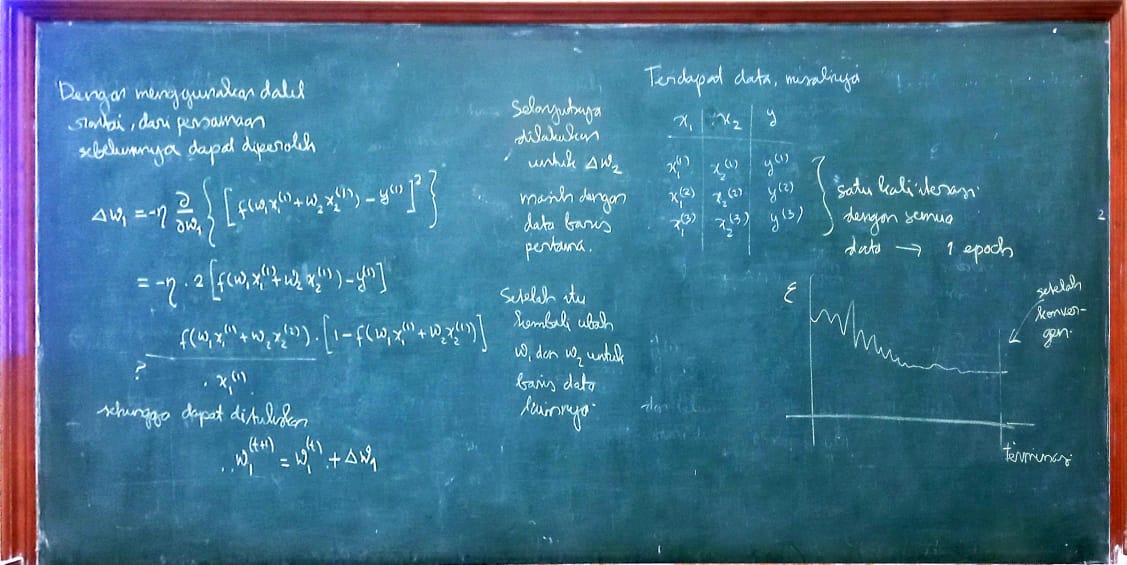 Dengan menggunakan dalil
rantai, dari persamaan
sebelumnya dapat diperoleh
Δw₁ = -η ∂/∂w₁ { [f(w₁x₁⁽¹⁾ + w₂x₂⁽¹⁾) - y⁽¹⁾]² }
= -η · 2 [f(w₁x₁⁽¹⁾ + w₂x₂⁽¹⁾) - y⁽¹⁾]
f(w₁x₁⁽¹⁾ + w₂x₂⁽²⁾) · [1 - f(w₁x₁⁽¹⁾ + w₂x₂⁽¹⁾)]
?
· x₁⁽¹⁾
sehingga dapat dituliskan
w₁⁽ᵗ⁺¹⁾ = w₁⁽ᵗ⁾ + Δw₁
Selanjutnya
dilakukan
untuk Δw₂
masih dengan
data baris
pertama.
Setelah itu
kembali ubah
w₁ dan w₂ untuk
baris data
lainnya.
Terdapat data, misalnya
x₁ x₂ y
x₁⁽¹⁾ x₂⁽¹⁾ y⁽¹⁾
x₁⁽²⁾ x₂⁽²⁾ y⁽²⁾
x₁⁽³⁾ x₂⁽³⁾ y⁽³⁾
satu kali iterasi
dengan semua
data → 1 epoch
2
ε
setelah
konver-
gen.
terminasi